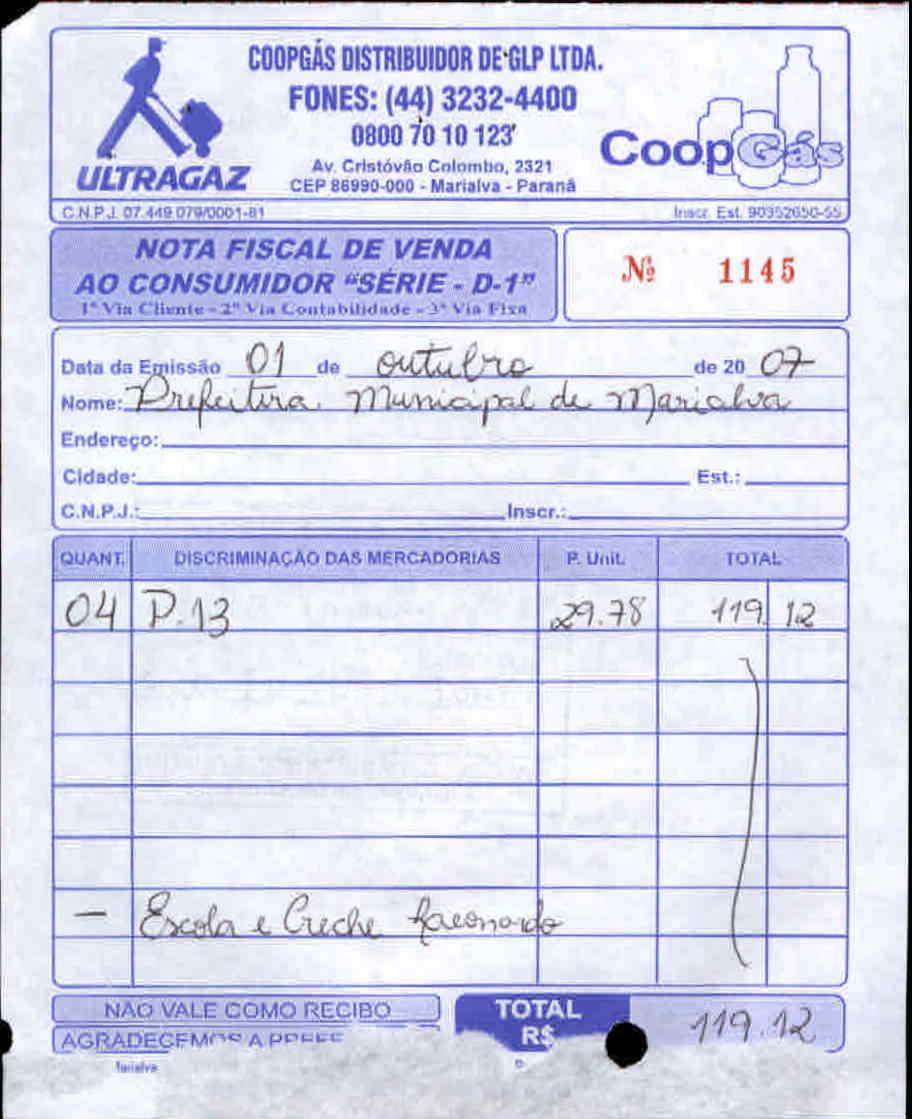 COOPGÁS DISTRIBUIDOR DE GLP LTDA.
FONES: (44) 3232-4400
0800 70 10 123
Av. Cristóvão Colombo, 2321
CEP 86990-000 - Marialva - Paraná
ULTRAGAZ
CoopGás
C.N.P.J. 07.449.079/0001-81
Inscr. Est. 90352650-55
NOTA FISCAL DE VENDA
AO CONSUMIDOR "SÉRIE - D-1"
1ª Via Cliente - 2ª Via Contabilidade - 3ª Via Fixa
Nº 1145
Data da Emissão 01 de outubro de 20 07
Nome: Prefeitura Municipal de Marialva
Endereço:
Cidade: Est.:
C.N.P.J.: Inscr.:
QUANT. DISCRIMINAÇÃO DAS MERCADORIAS P. Unit. TOTAL
04 P.13 29.78 119 12
- Escola e Creche
NÃO VALE COMO RECIBO
TOTAL
R$ 119.12
AGRADECEMOS A